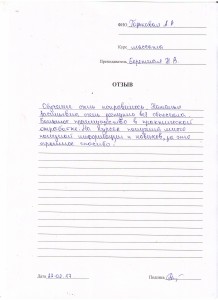 ФИО Торкова А А
Курс массажа
Преподаватель Березина Н В
ОТЗЫВ
Обучение очень понравилось. Занятия
очень
большое преимущество в практической
отработке. На курсе получила много
полезной информации и навыков, за что
огромное спасибо!
Дата 27.02.17
Подпись